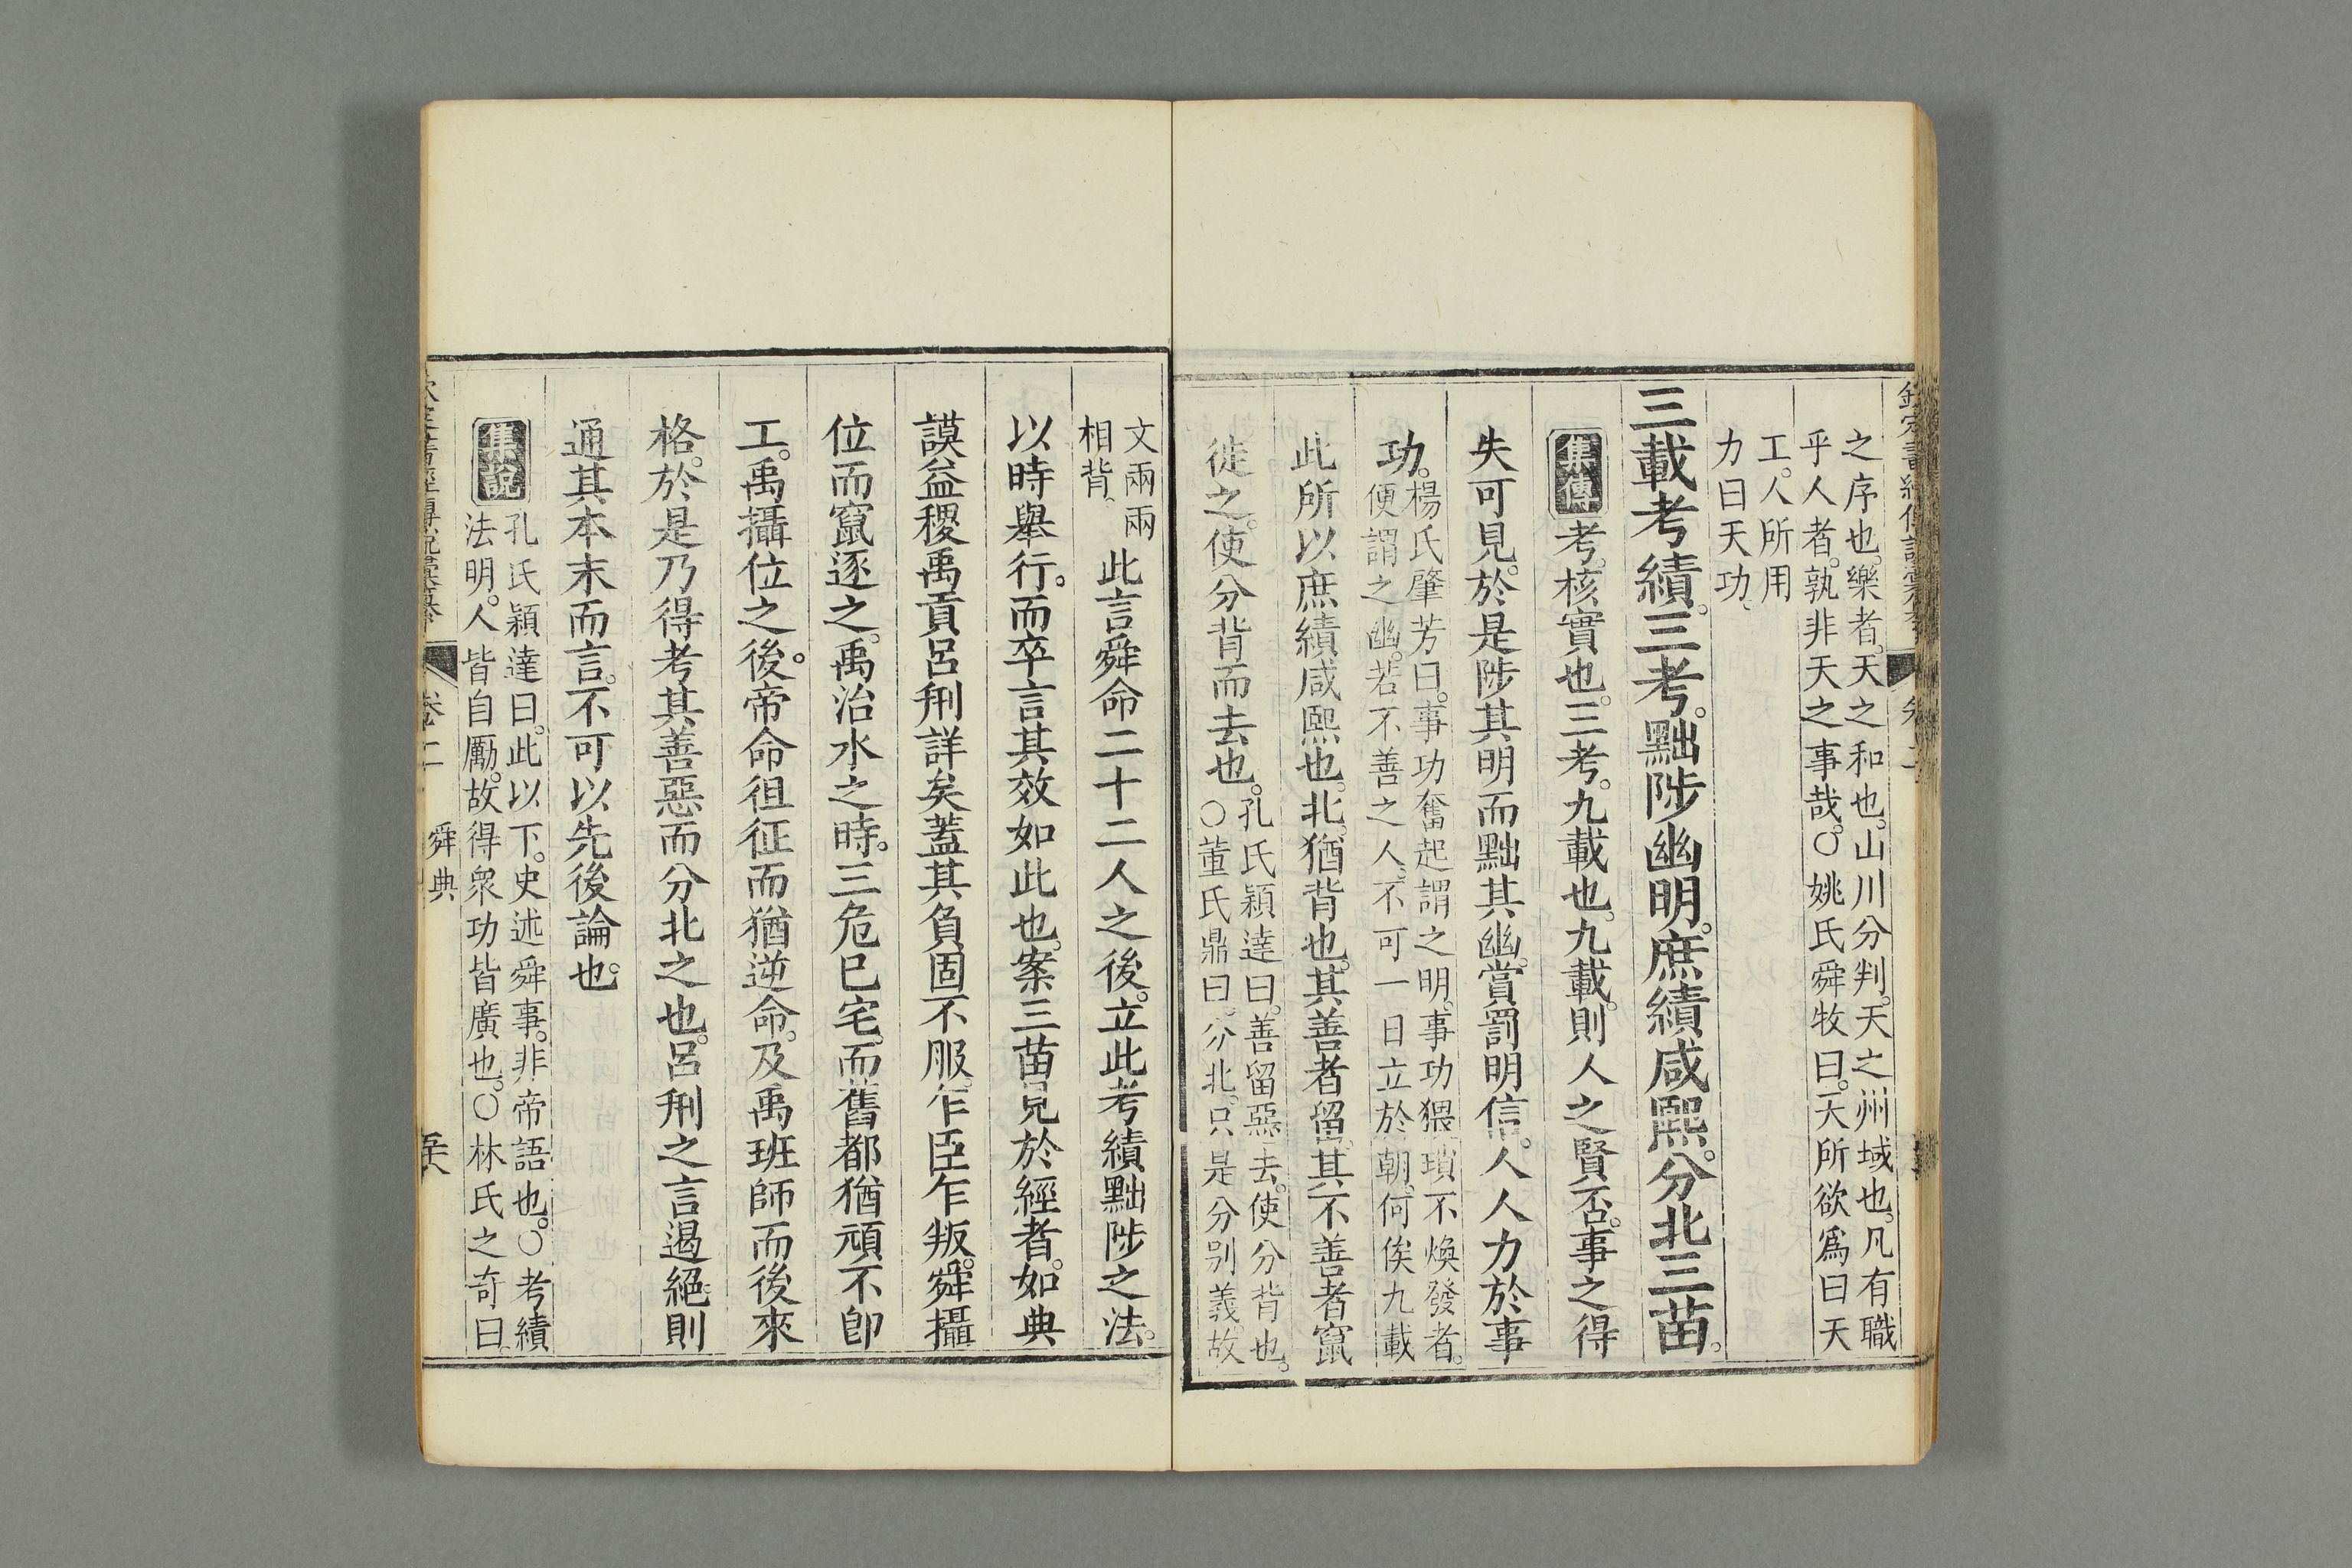 之序也。樂者。天之和也。山川分判。天之州域也。凡有職
乎人者。孰非天之事哉。○姚氏舜牧曰。天所欲爲曰天
工。人所用
力曰天功。
三載考績。三考。黜陟幽明。庶績咸熙。分北三苗。
集傳 考。核實也。三考。九載也。九載。則人之賢否。事之得
失可見。於是陟其明而黜其幽。賞罰明信。人人力於事
功。
楊氏肇芳曰。事功奮起謂之明。事功猥瑣不煥發者。
便謂之幽。若不善之人。不可一日立於朝。何俟九載
此所以庶績咸熙也。北。猶背也。其善者留。其不善者竄
徙之。使分背而去也。
孔氏穎達曰。善留惡去。使分背也。
○董氏鼎曰。分北。只是分別義。故
文兩兩
相背。
此言舜命二十二人之後。立此考績黜陟之法。
以時舉行。而卒言其效如此也。案三苗見於經者。如典
謨益稷禹貢呂刑詳矣。蓋其負固不服。乍臣乍叛。舜攝
位而竄逐之。禹治水之時。三危已宅。而舊都猶頑不卽
工。禹攝位之後。帝命徂征而猶逆命。及禹班師而後來
格。於是乃得考其善惡而分北之也。呂刑之言遏絕。則
通其本末而言。不可以先後論也。
集說
孔氏穎達曰。此以下。史述舜事。非帝語也。○考績
法明。人皆自勵。故得衆功皆廣也。○林氏之奇曰。
卷二 舜典